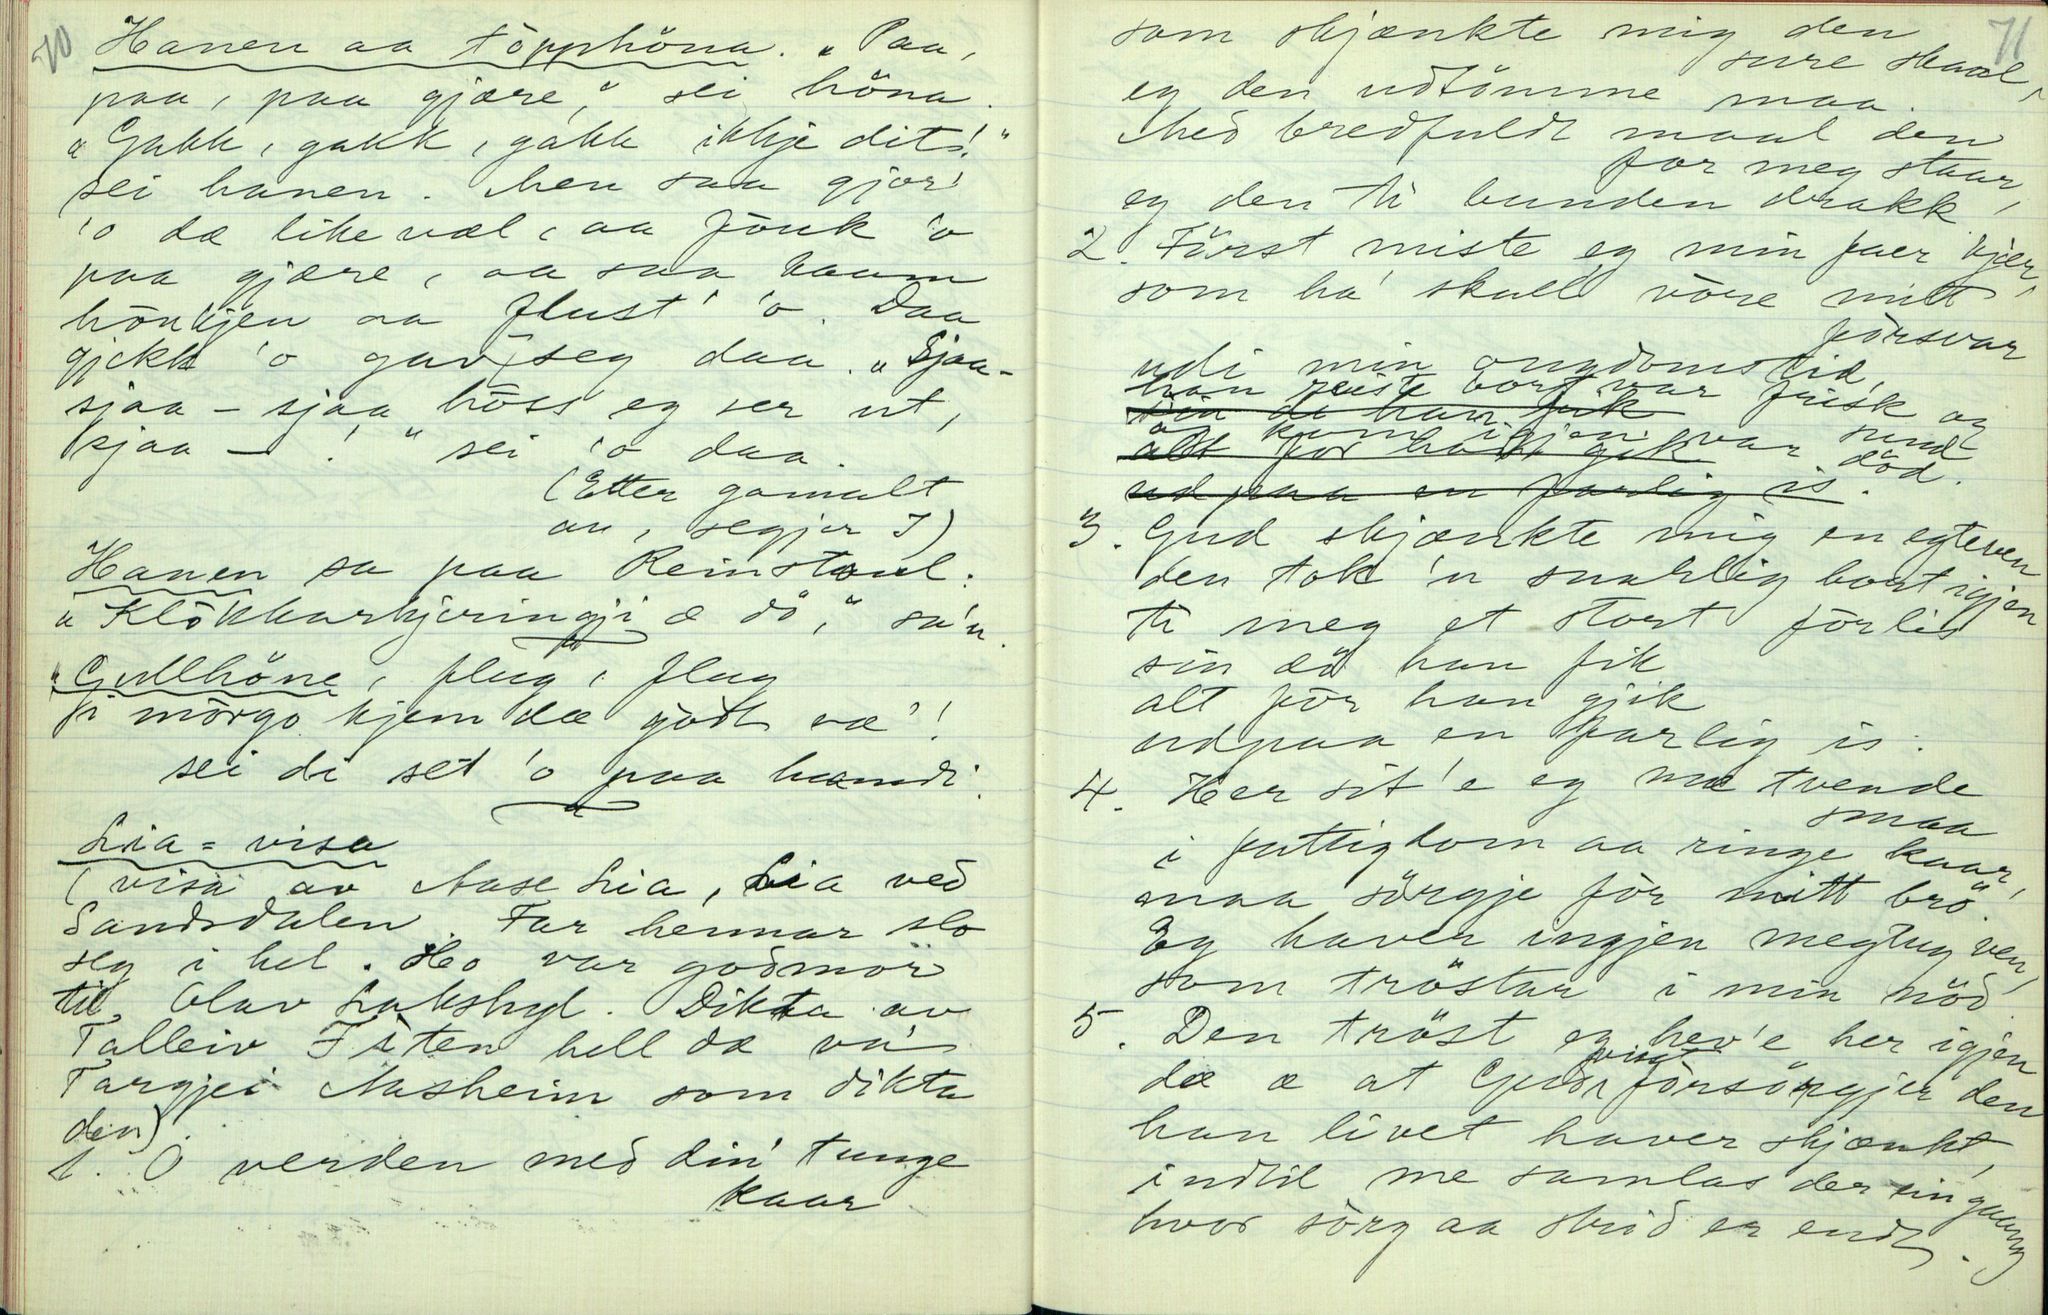 70
Hanen aa töpphöna. „Paa,
paa, paa gjære," sei höna.
„Gakk, gakk, gakk ikkje dit!"
sei hanen. Men saa gjor'
'o dæ likevæl, aa fönk 'o
paa gjære, aa saa kaam
hönkjen aa flust' 'o. Daa
gjekk 'o gav seg daa. „Sjaa-
sjaa - sjaa höss eg ser ut,
sjaa - !" sei 'o daa.
(Etter gamalt
au, segjer I)
Hanen sa paa Reinstaul:
„Klökkarkjeringji æ dö," sa'n.
„Gullhöne, flug, flug
i mörgo kjem dæ godt væ'!
sei di set 'o paa haandi.
Lia = visa
(visa av Aase Lia, Lia ved
Sandsdalen. Far hennar slo
seg i hel. Ho var godmor
til Olav Lakskyl. Dikta av
Talleiv Fiten hell dæ va
Targjei Aasheim som dikta
den).
1. O verden med din tunge
kaar
71
som skjænkte mig den
sure skaal,
eg den udtömme maa.
Med bredfuldt maal den
for meg staar,
eg den ti bunden drakk.
2. Fürst miste eg min faer kjær,
som ha' skull' være mitt
försvar
udi min ungdomstid,
han reiste bort var frisk og
sund
sin dö han fik
og kom igjen var död.
alt för han gik
ud paa en farlig is.
3. Gud skjænkte mig en egteven
den tok 'n snarlig bort igjen
ti meg et stort förlis
sin dö han fik
alt för han gjik
udpaa en farlig is.
4. Her sit'e eg mæ tvende
smaa
i fattigdom aa ringe kaar,
maa sörgje för mitt brö.
Eg haver ingjen megtug ven,
som tröstar i min nöd.
5. Den tröst eg hev'e her igjen
dæ æ at Gud vist försörgjer den
han livet haver skjænkt,
indtil me samlas der eingaang
hvor sörg aa strid er endt.